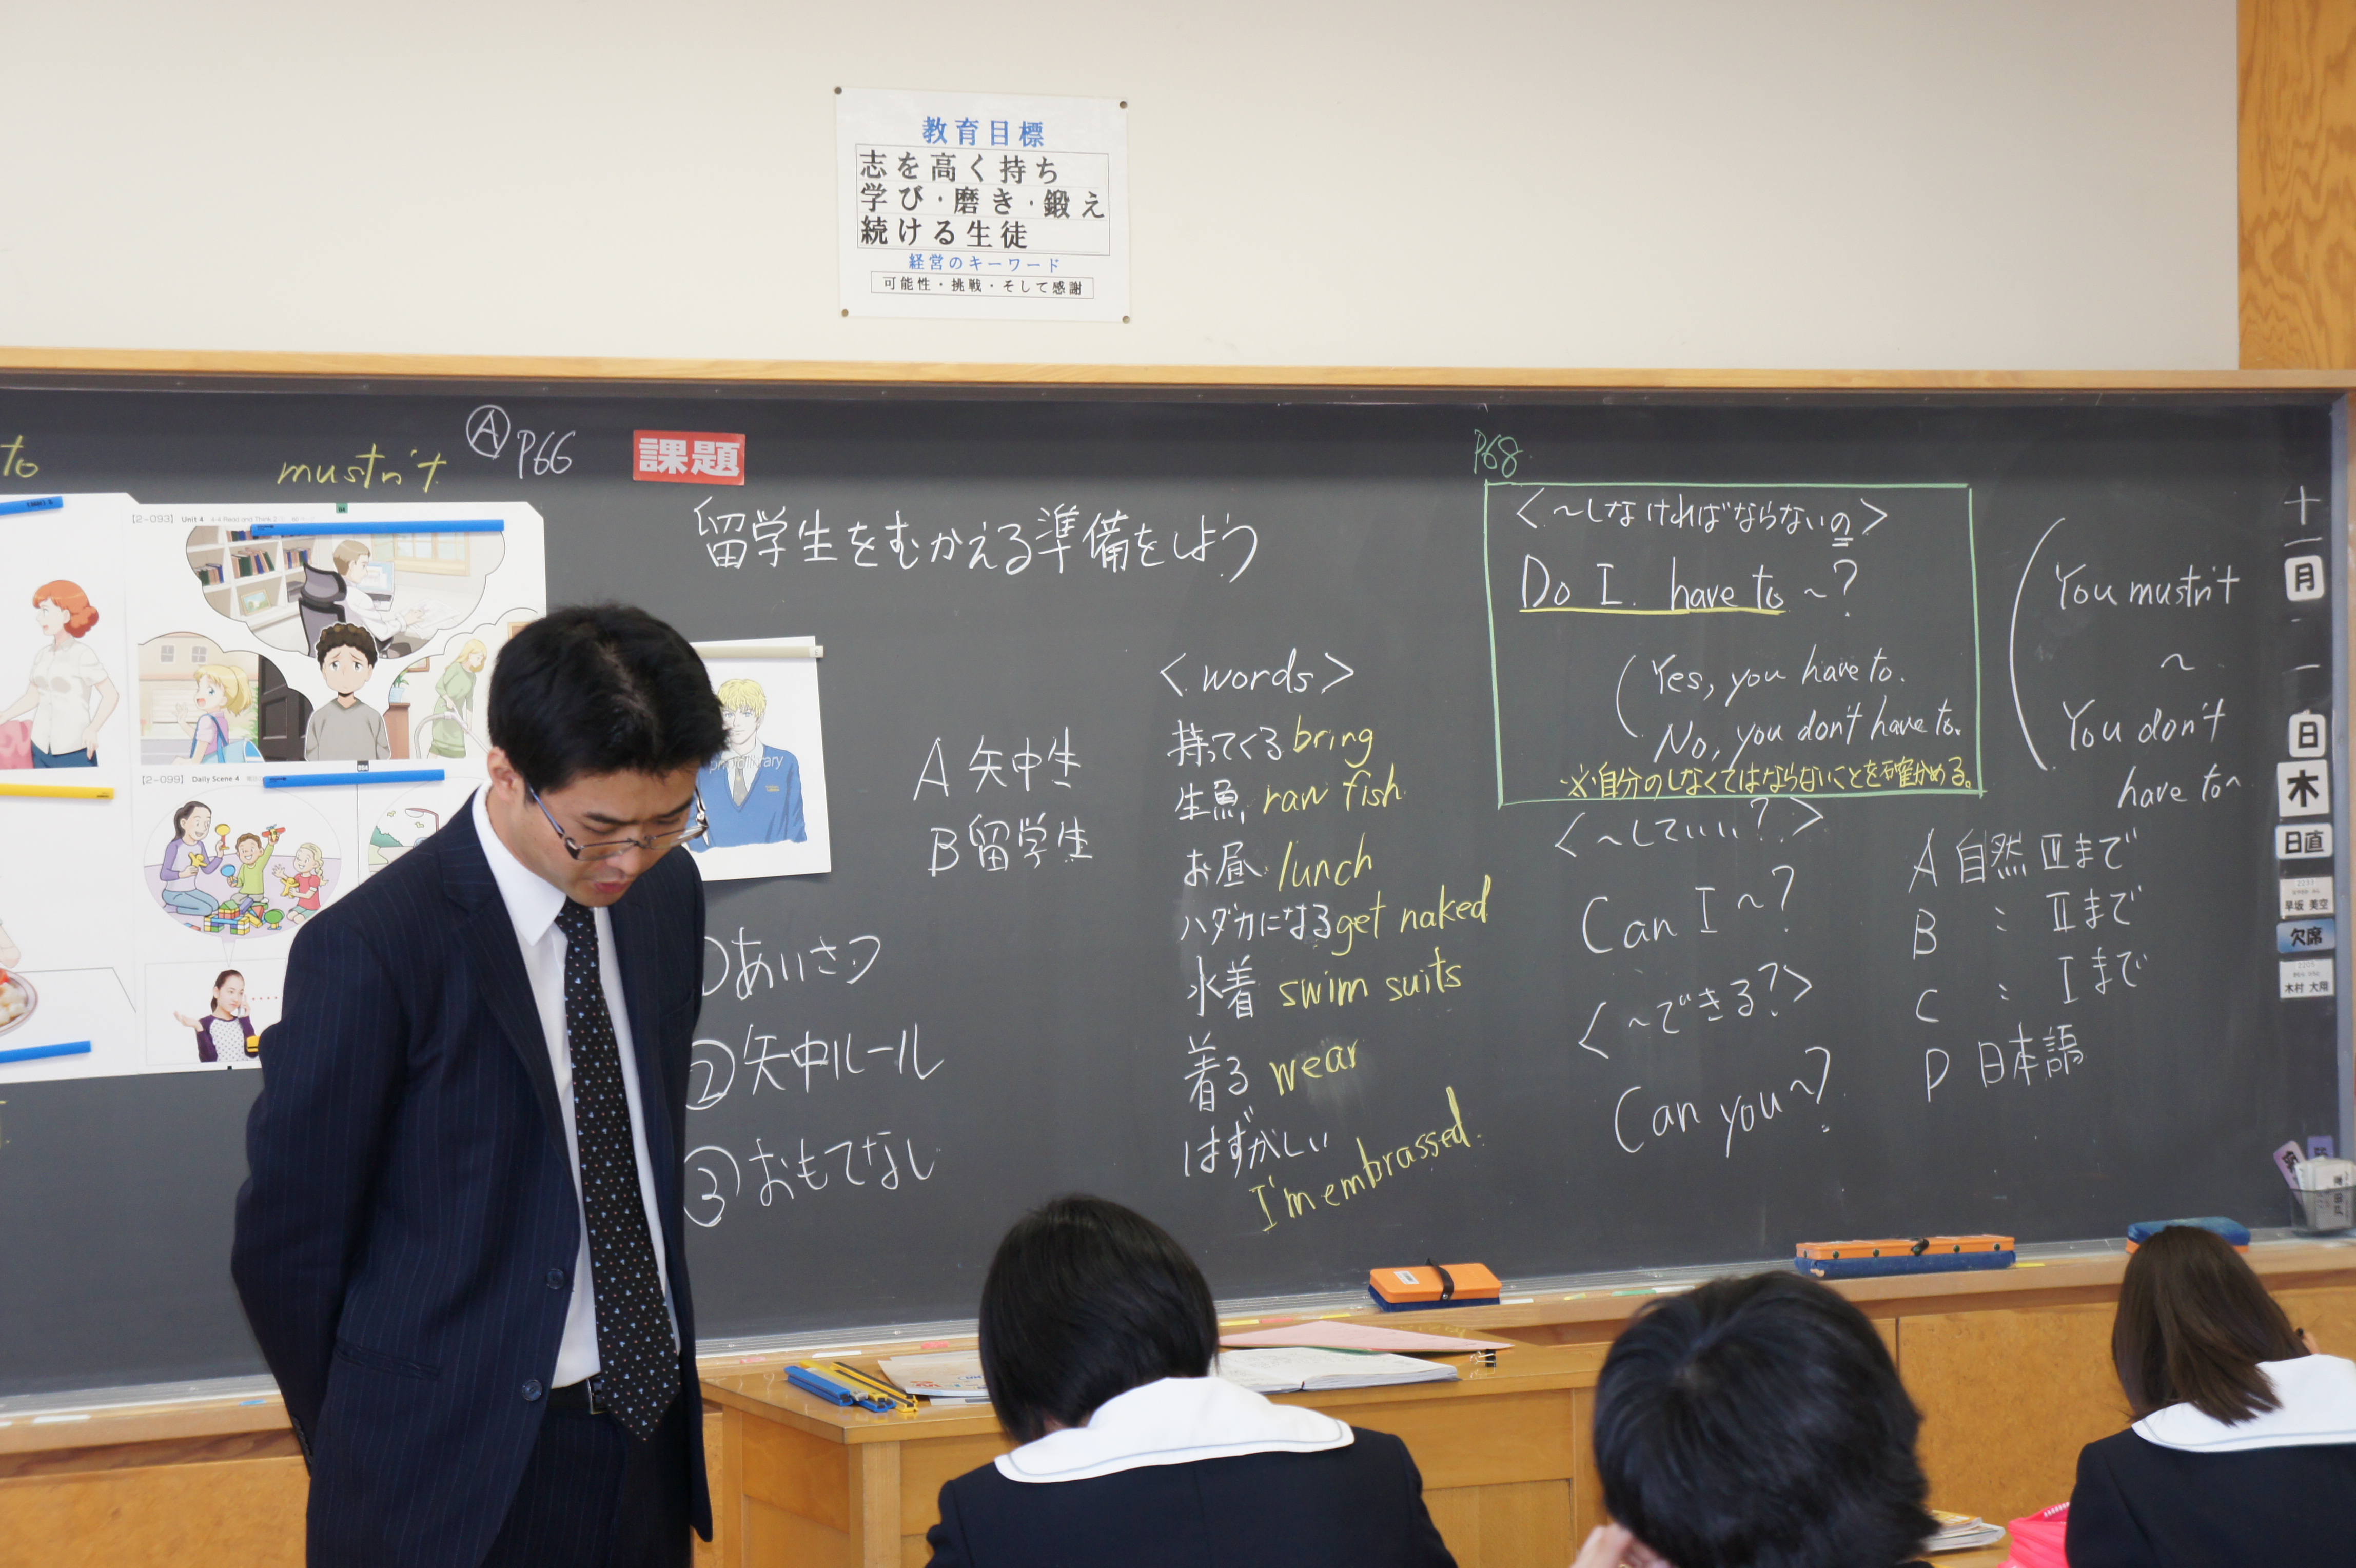 教育目標
志を高く持ち
学び・磨き・鍛え
続ける生徒
経営のキーワード
可能性・挑戦・そして感謝
to
mustn't
Ⓐ P66
課題
留学生をむかえる準備をしよう
【2-093】 Unit 4
【2-099】 Daily Scene 4
A 矢中生
B 留学生
①あいさつ
②矢中ルール
③おもてなし
<words>
持ってくる bring
生魚 raw fish
お昼 lunch
ハダカになる get naked
水着 swim suits
着る wear
はずかしい
I'm embrassed.
P68
<〜しなければならないの>
Do I have to 〜?
Yes, you have to.
No, you don't have to.
※自分のしなくてはならないことを確かめる。
<〜していい?>
Can I 〜?
<〜できる?>
Can you〜?
You mustn't
〜
You don't
have to〜
A 自然 Ⅲまで
B : Ⅱまで
C : Ⅰまで
D 日本語
十一
月
一
日
木
日直
早坂 美空
欠席
木村 大翔